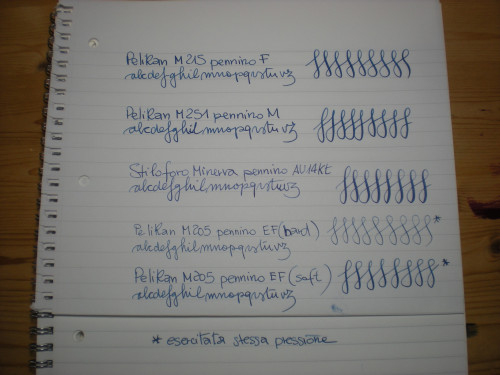 Pelikan M215 pennino F
abcdefghilmnopqrstuvz
Pelikan M251 pennino M
abcdefghilmnopqrstuvz
Stiloforo Minerva pennino AU14KT
abcdefghilmnopqrstuvz
Pelikan M205 pennino EF (hard) *
abcdefghilmnopqrstuvz
Pelikan M205 pennino EF (soft) *
abcdefghilmnopqrstuvz
* esercitata stessa pressione